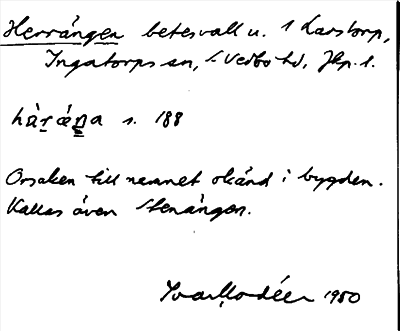 Herrängen betesvall u. 1 Karstorp,
Ingatorps sn, S. Vedbo hd, Jkp. l.
hàr̠áŋa s. 188
Orsaken till namnet okänd i bygden.
Kallas även Stenängen.
Ivar Modéer 1950